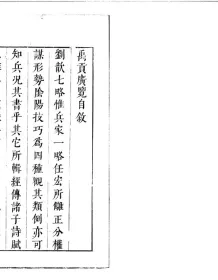 禹貢廣覽自敘
劉歆七略惟兵家一略任宏所離正分權
謀形勢陰陽技巧爲四種觀其類例亦可
知兵况其書乎其它所輯經傳諸子詩賦